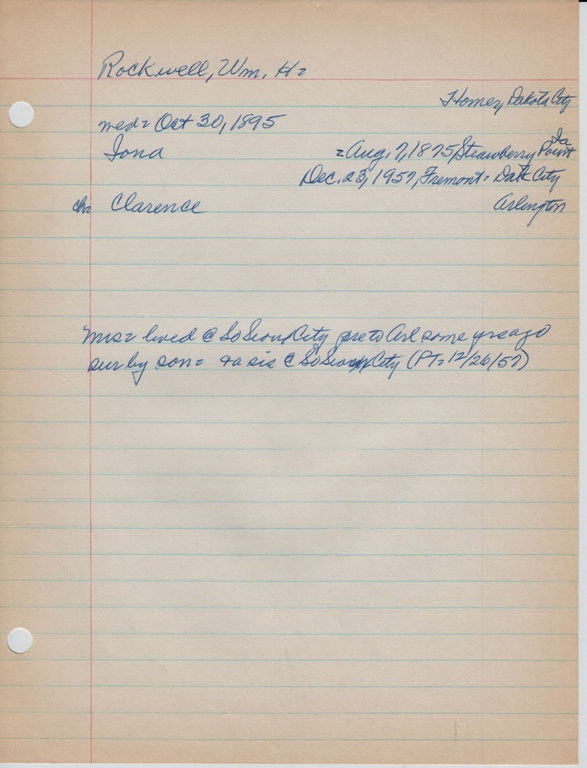 Rockwell, Wm. H=
Homer, Dakota City
med= Oct 30, 1895
Iona =Aug. 7, 1875, Strawberry Point Ia
Dec. 23, 1957, Fremont= Dak City
ch= Clarence Arlington
Mrs= lived @ So Sioux City to Arl some yrs ago
sur by son= + a sis @ So Sioux City (PT= 12/26/57)